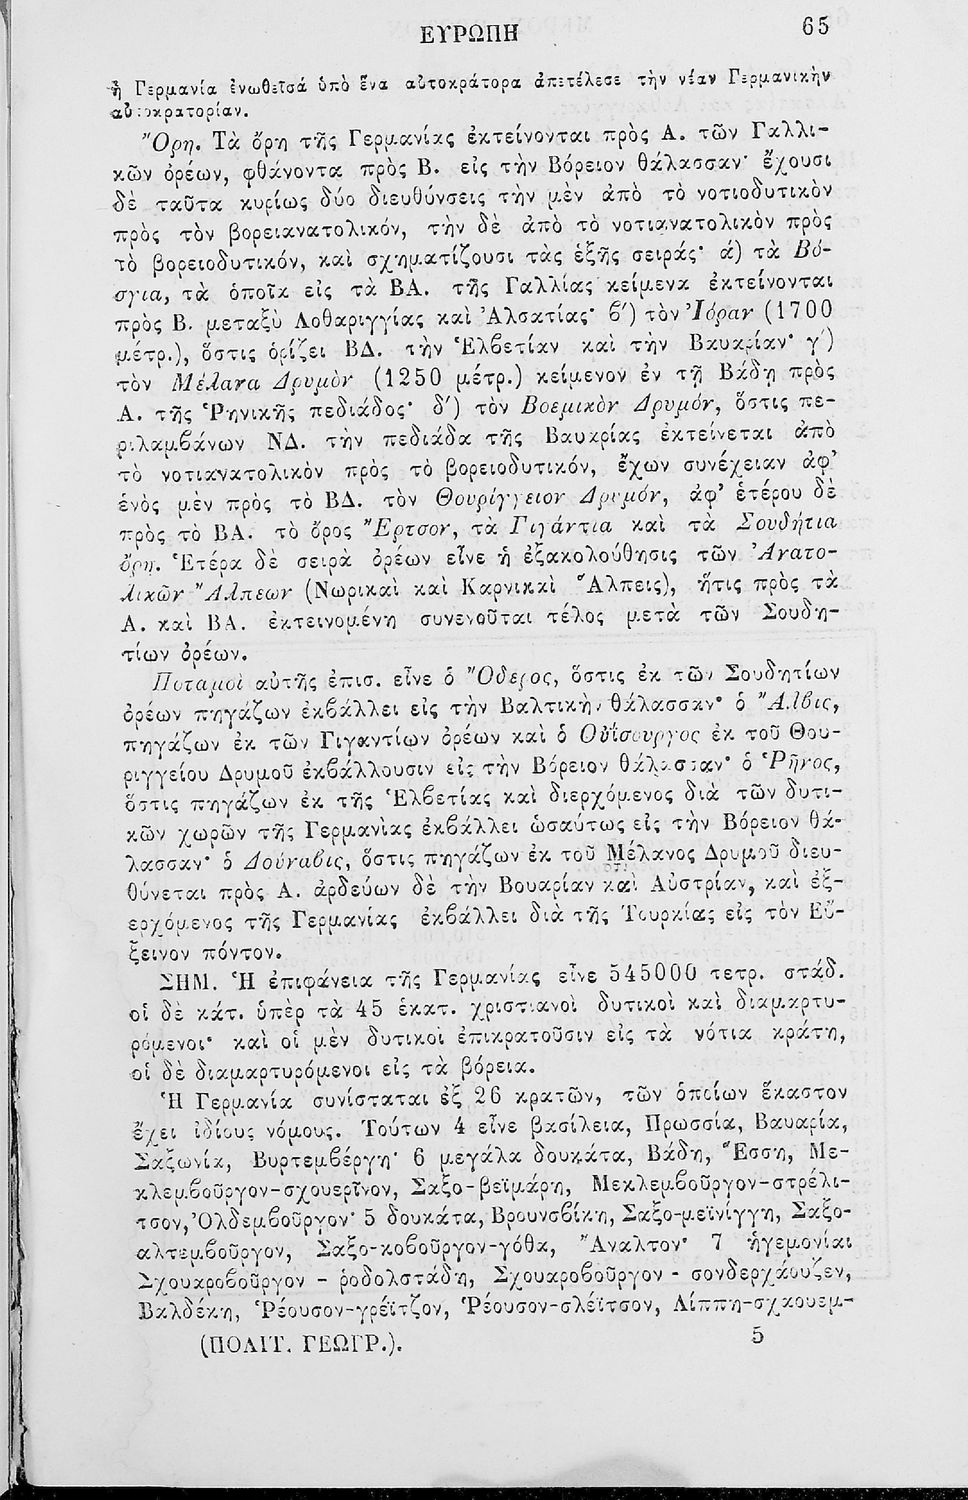 ΕΥΡΩΠΗ 65
ἡ Γερμανία ἑνωθεῖσά ὑπὸ ἕνα αὐτοκράτορα ἀπετέλεσε τὴν νέαν Γερμανικὴν
αὐτοκρατορίαν.
Ὄρη. Τὰ ὄρη τῆς Γερμανίας ἐκτείνονται πρὸς Α. τῶν Γαλλι-
κῶν ὀρέων, φθάνοντα πρὸς Β. εἰς τὴν Βόρειον θάλασσαν· ἔχουσι
δὲ ταῦτα κυρίως δύο διευθύνσεις τὴν μὲν ἀπὸ τὸ νοτιοδυτικὸν
πρὸς τὸν βορειανατολικόν, τὴν δὲ ἀπὸ τὸ νοτιανατολικὸν πρὸς
τὸ βορειοδυτικόν, καὶ σχηματίζουσι τὰς ἑξῆς σειράς· ά) τὰ Βό-
σγια, τὰ ὁποῖα εἰς τὰ ΒΑ. τῆς Γαλλίας κείμενα ἐκτείνονται
πρὸς Β. μεταξὺ Λοθαριγγίας καὶ Ἀλσατίας· β΄) τὸν Ἰόραν (1700
μέτρ.), ὅστις ὁρίζει ΒΔ. τὴν Ἑλβετίαν καὶ τὴν Βαυαρίαν· γ΄)
τὸν Μέλανα Δρυμὸν (1250 μέτρ.) κείμενον ἐν τῇ Βάδῃ πρὸς
Α. τῆς Ῥηνικῆς πεδιάδος· δ΄) τὸν Βοεμικὸν Δρυμόν, ὅστις πε-
ριλαμβάνων ΝΔ. τὴν πεδιάδα τῆς Βαυαρίας ἐκτείνεται ἀπὸ
τὸ νοτιανατολικὸν πρὸς τὸ βορειοδυτικόν, ἔχων συνέχειαν ἀφ’
ἑνὸς μὲν πρὸς τὸ ΒΔ. τὸν Θουρίγγειον Δρυμόν, ἀφ’ ἑτέρου δὲ
πρὸς τὸ ΒΑ. τὸ ὄρος Ἔρτσον, τὰ Γιγάντια καὶ τὰ Σουδήτια
ὄρη. Ἑτέρα δὲ σειρὰ ὀρέων εἶνε ἡ ἐξακολούθησις τῶν Ἀνατο-
λικῶν Ἄλπεων (Νωρικαὶ καὶ Καρνικαὶ Ἅλπεις), ἥτις πρὸς τὰ
Α. καὶ ΒΑ. ἐκτεινομένη συνενοῦται τέλος μετὰ τῶν Σουδη-
τίων ὀρέων.
Ποταμοὶ αὐτῆς ἐπισ. εἶνε ὁ Ὄδερος, ὅστις ἐκ τῶν Σουδητίων
ὀρέων πηγάζων ἐκβάλλει εἰς τὴν Βαλτικὴν θάλασσαν· ὁ Ἄλβις,
πηγάζων ἐκ τῶν Γιγαντίων ὀρέων καὶ ὁ Οὐΐσουργος ἐκ τοῦ Θου-
ριγγείου Δρυμοῦ ἐκβάλλουσιν εἰς τὴν Βόρειον θάλασσαν· ὁ Ῥῆνος,
ὅστις πηγάζων ἐκ τῆς Ἑλβετίας καὶ διερχόμενος διὰ τῶν δυτι-
κῶν χωρῶν τῆς Γερμανίας ἐκβάλλει ὡσαύτως εἰς τὴν Βόρειον θά-
λασσαν· ὁ Δούναβις, ὅστις πηγάζων ἐκ τοῦ Μέλανος Δρυμοῦ διευ-
θύνεται πρὸς Α. ἀρδεύων δὲ τὴν Βουαρίαν καὶ Αὐστρίαν, καὶ ἐξ-
ερχόμενος τῆς Γερμανίας ἐκβάλλει διὰ τῆς Τουρκίας εἰς τὸν Εὔ-
ξεινον πόντον.
ΣΗΜ. Ἡ ἐπιφάνεια τῆς Γερμανίας εἶνε 545000 τετρ. στάδ.
οἱ δὲ κάτ. ὑπὲρ τὰ 45 ἑκατ. χριστιανοὶ δυτικοὶ καὶ διαμαρτυ-
ρόμενοι· καὶ οἱ μὲν δυτικοὶ ἐπικρατοῦσιν εἰς τὰ νότια κράτη,
οἱ δὲ διαμαρτυρόμενοι εἰς τὰ βόρεια.
Ἡ Γερμανία συνίσταται ἐξ 26 κρατῶν, τῶν ὁποίων ἕκαστον
ἔχει ἰδίους νόμους. Τούτων 4 εἶνε βασίλεια, Πρωσσία, Βαυαρία,
Σαξωνία, Βυρτεμβέργη· 6 μεγάλα δουκάτα, Βάδη, Ἕσση, Με-
κλεμβοῦργον-σχουερῖνον, Σαξο-βεϊμάρη, Μεκλεμβοῦργον-στρέλι-
τσον, Ὀλδεμβοῦργον· 5 δουκάτα, Βρουνσβίκη, Σαξο-μεϊνίγγη, Σαξο-
αλτεμβοῦργον, Σαξο-κοβοῦργον-γόθα, Ἄναλτον· 7 ἡγεμονίαι
Σχουαροβοῦργον - ῥοδολστάδη, Σχουαροβοῦργον - σονδερχάουζεν,
Βαλδέκη, Ῥέουσον-γρέϊτζον, Ῥέουσον-σλέϊτσον, Λίππη-σχαουεμ-
(ΠΟΛΙΤ. ΓΕΩΓΡ.). 5